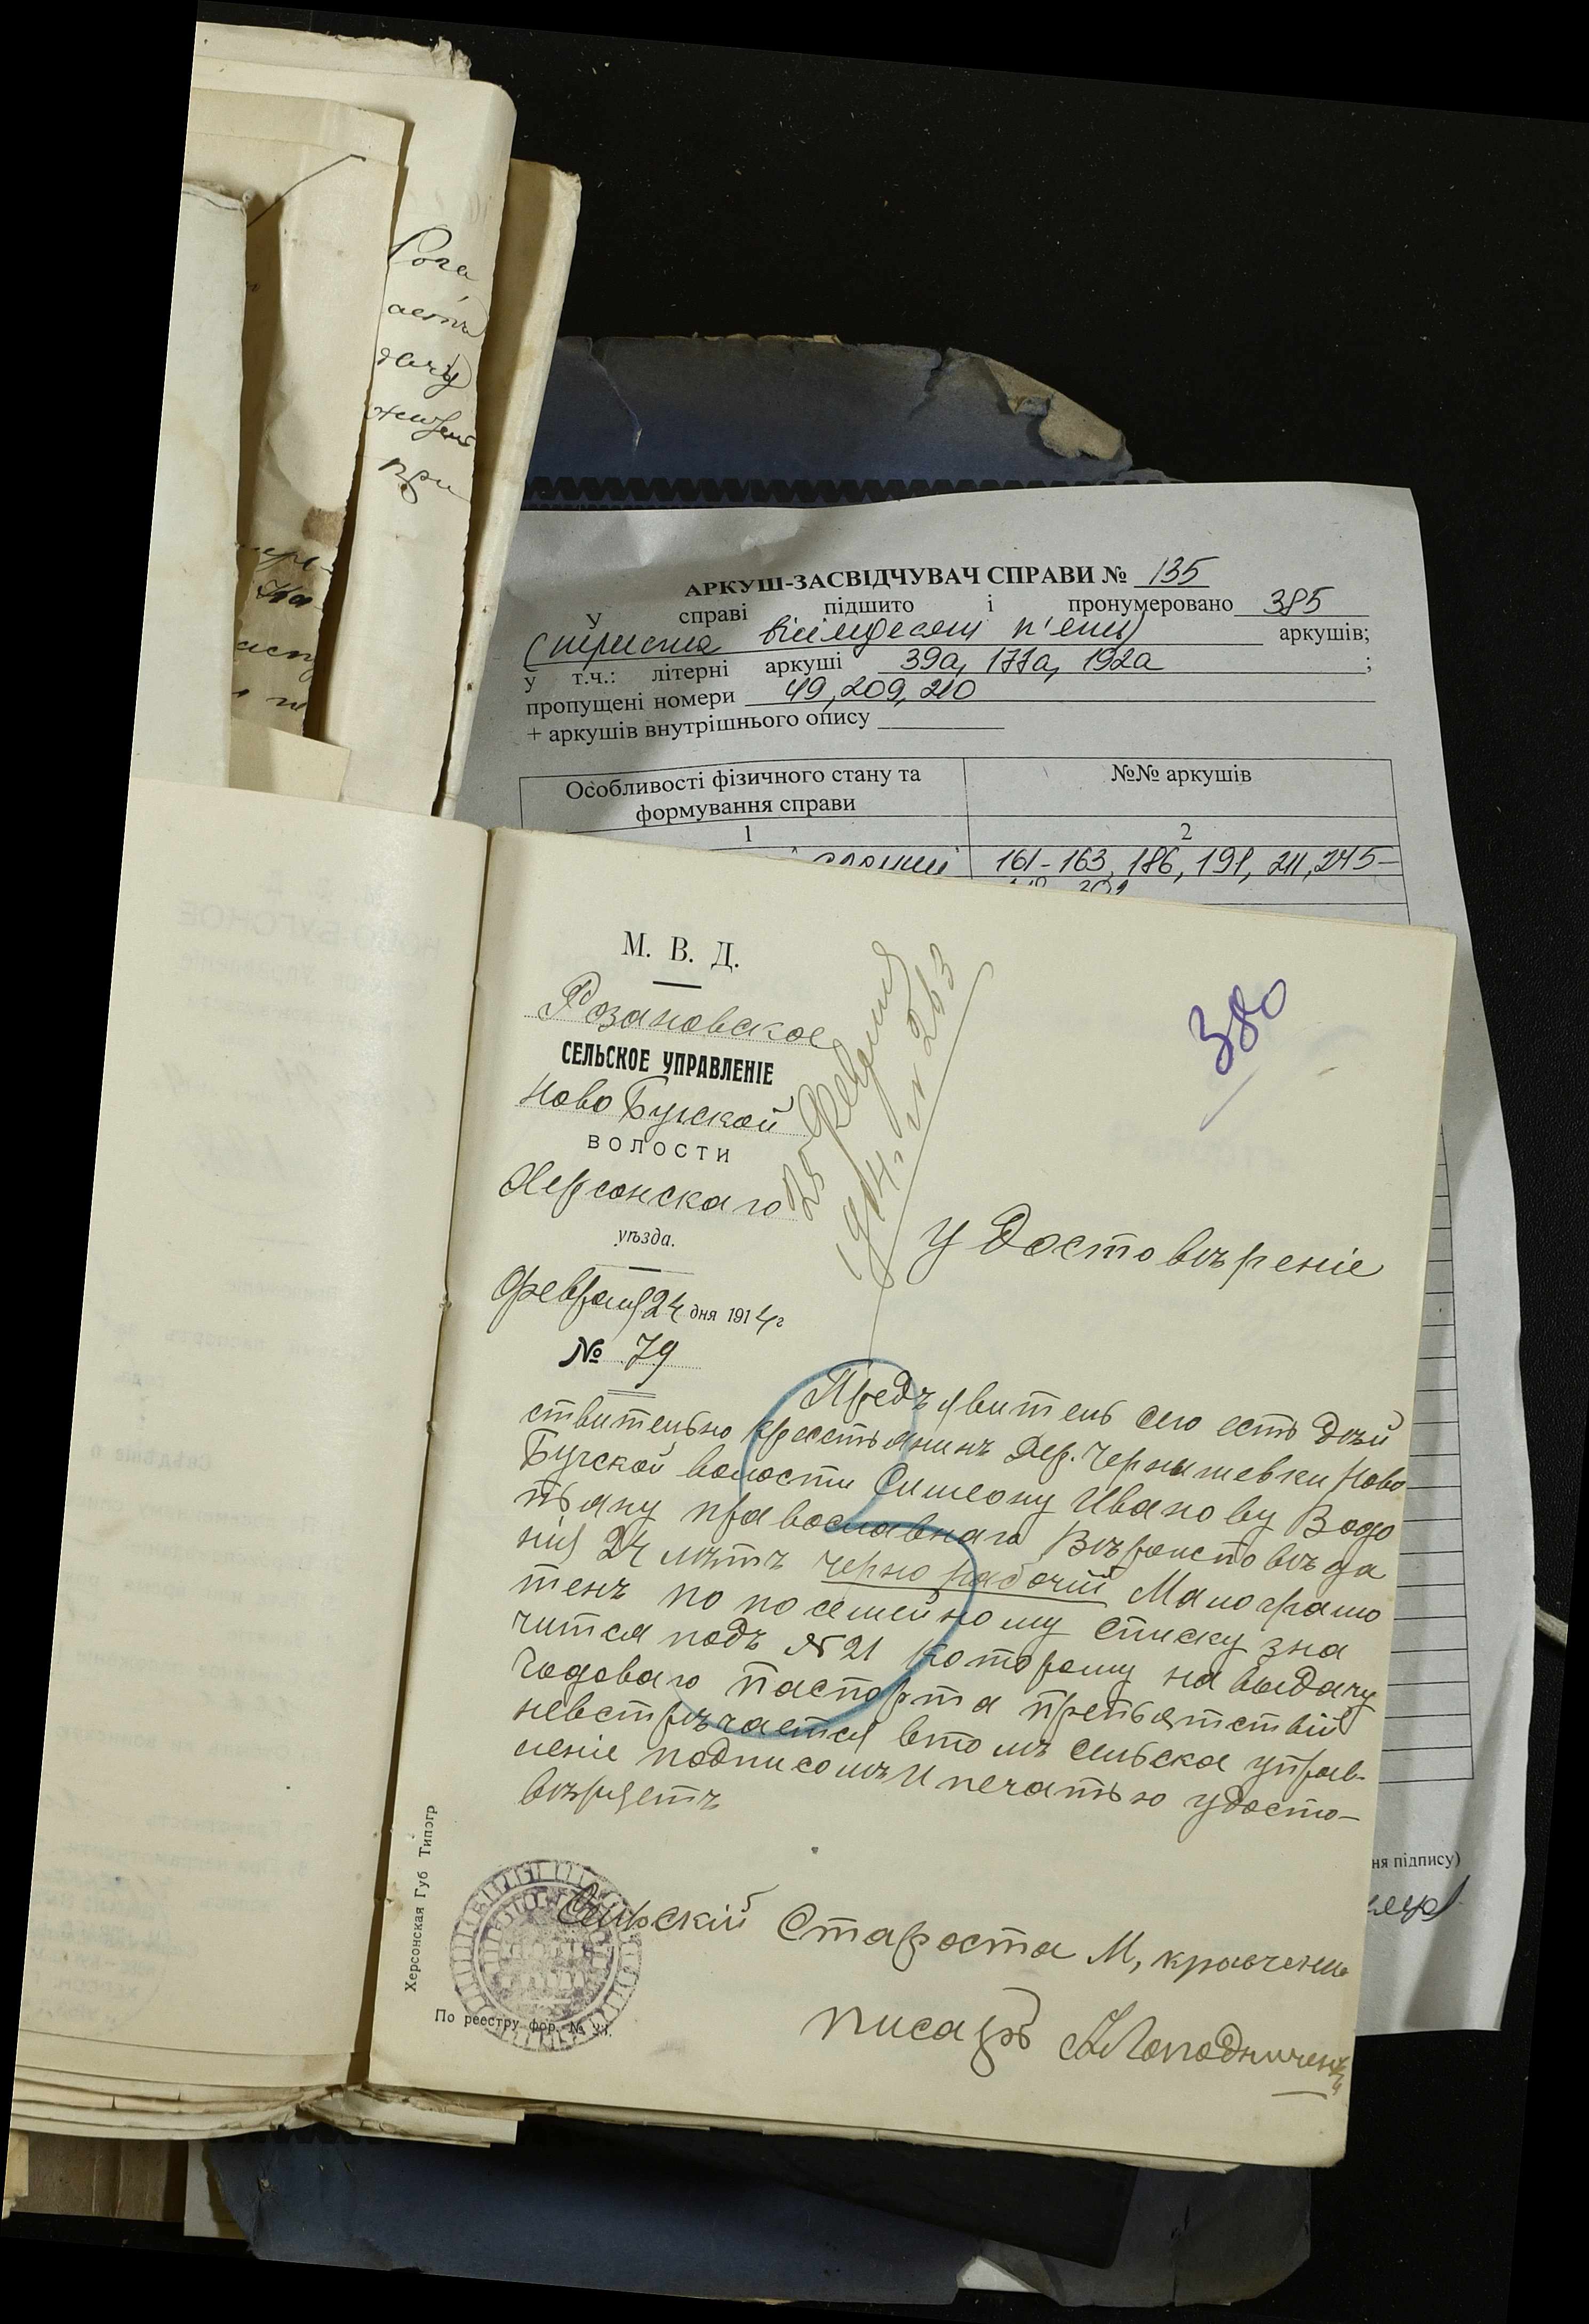 Рога
дачу
при
АРКУШ-ЗАСВІДЧУВАЧ СПРАВИ № 135
У справі підшито і пронумеровано 385
(триста вісімдесят п'ять) аркушів;
у т.ч.: літерні аркуші 39а, 177а, 192а ;
пропущені номери 49, 209, 210
+ аркушів внутрішнього опису
Особливості фізичного стану та формування справи
№№ аркушів
1
2
161-163, 186, 191, 211, 245-
М. В. Д.
Розановское
СЕЛЬСКОЕ УПРАВЛЕНІЕ
Ново Бугской
ВОЛОСТИ
Херсонскаго
уѣзда.
Февраля 24 дня 1914 г
№ 79
25 февраля
1914 г № 263
380
Удостовѣреніе
Предъявитель сего есть дѣй
ствительно крестьянинъ Дер. Чернышевки Ново
Бугской волости Симеону Иванову Водо
пьяну православнаго Вѣроисповѣда
нія 24 лѣтъ чернорабочій Малограмо
тенъ по посемейному списку зна
чится подъ № 21 которому на выдачу
годоваго паспорта препятствій
невстречается втомъ сельское управ-
леніе подписомъ и печатью удосто-
вѣряетъ
Сельскій Староста М, кравчен
писарь
Херсонская Губ Типогр
По реестру фор. №
ня підпису)